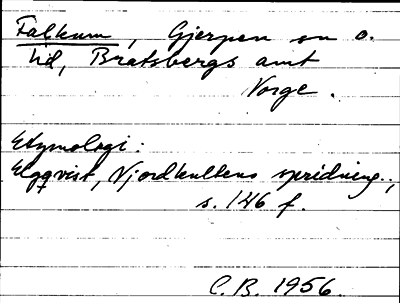 Falkum, Gjerpen sn o.
hd, Bratsbergs amt
Norge.
Etymologi:
Elgqvist, Njordkultens spridning,
s. 146 f.
C.B. 1956.